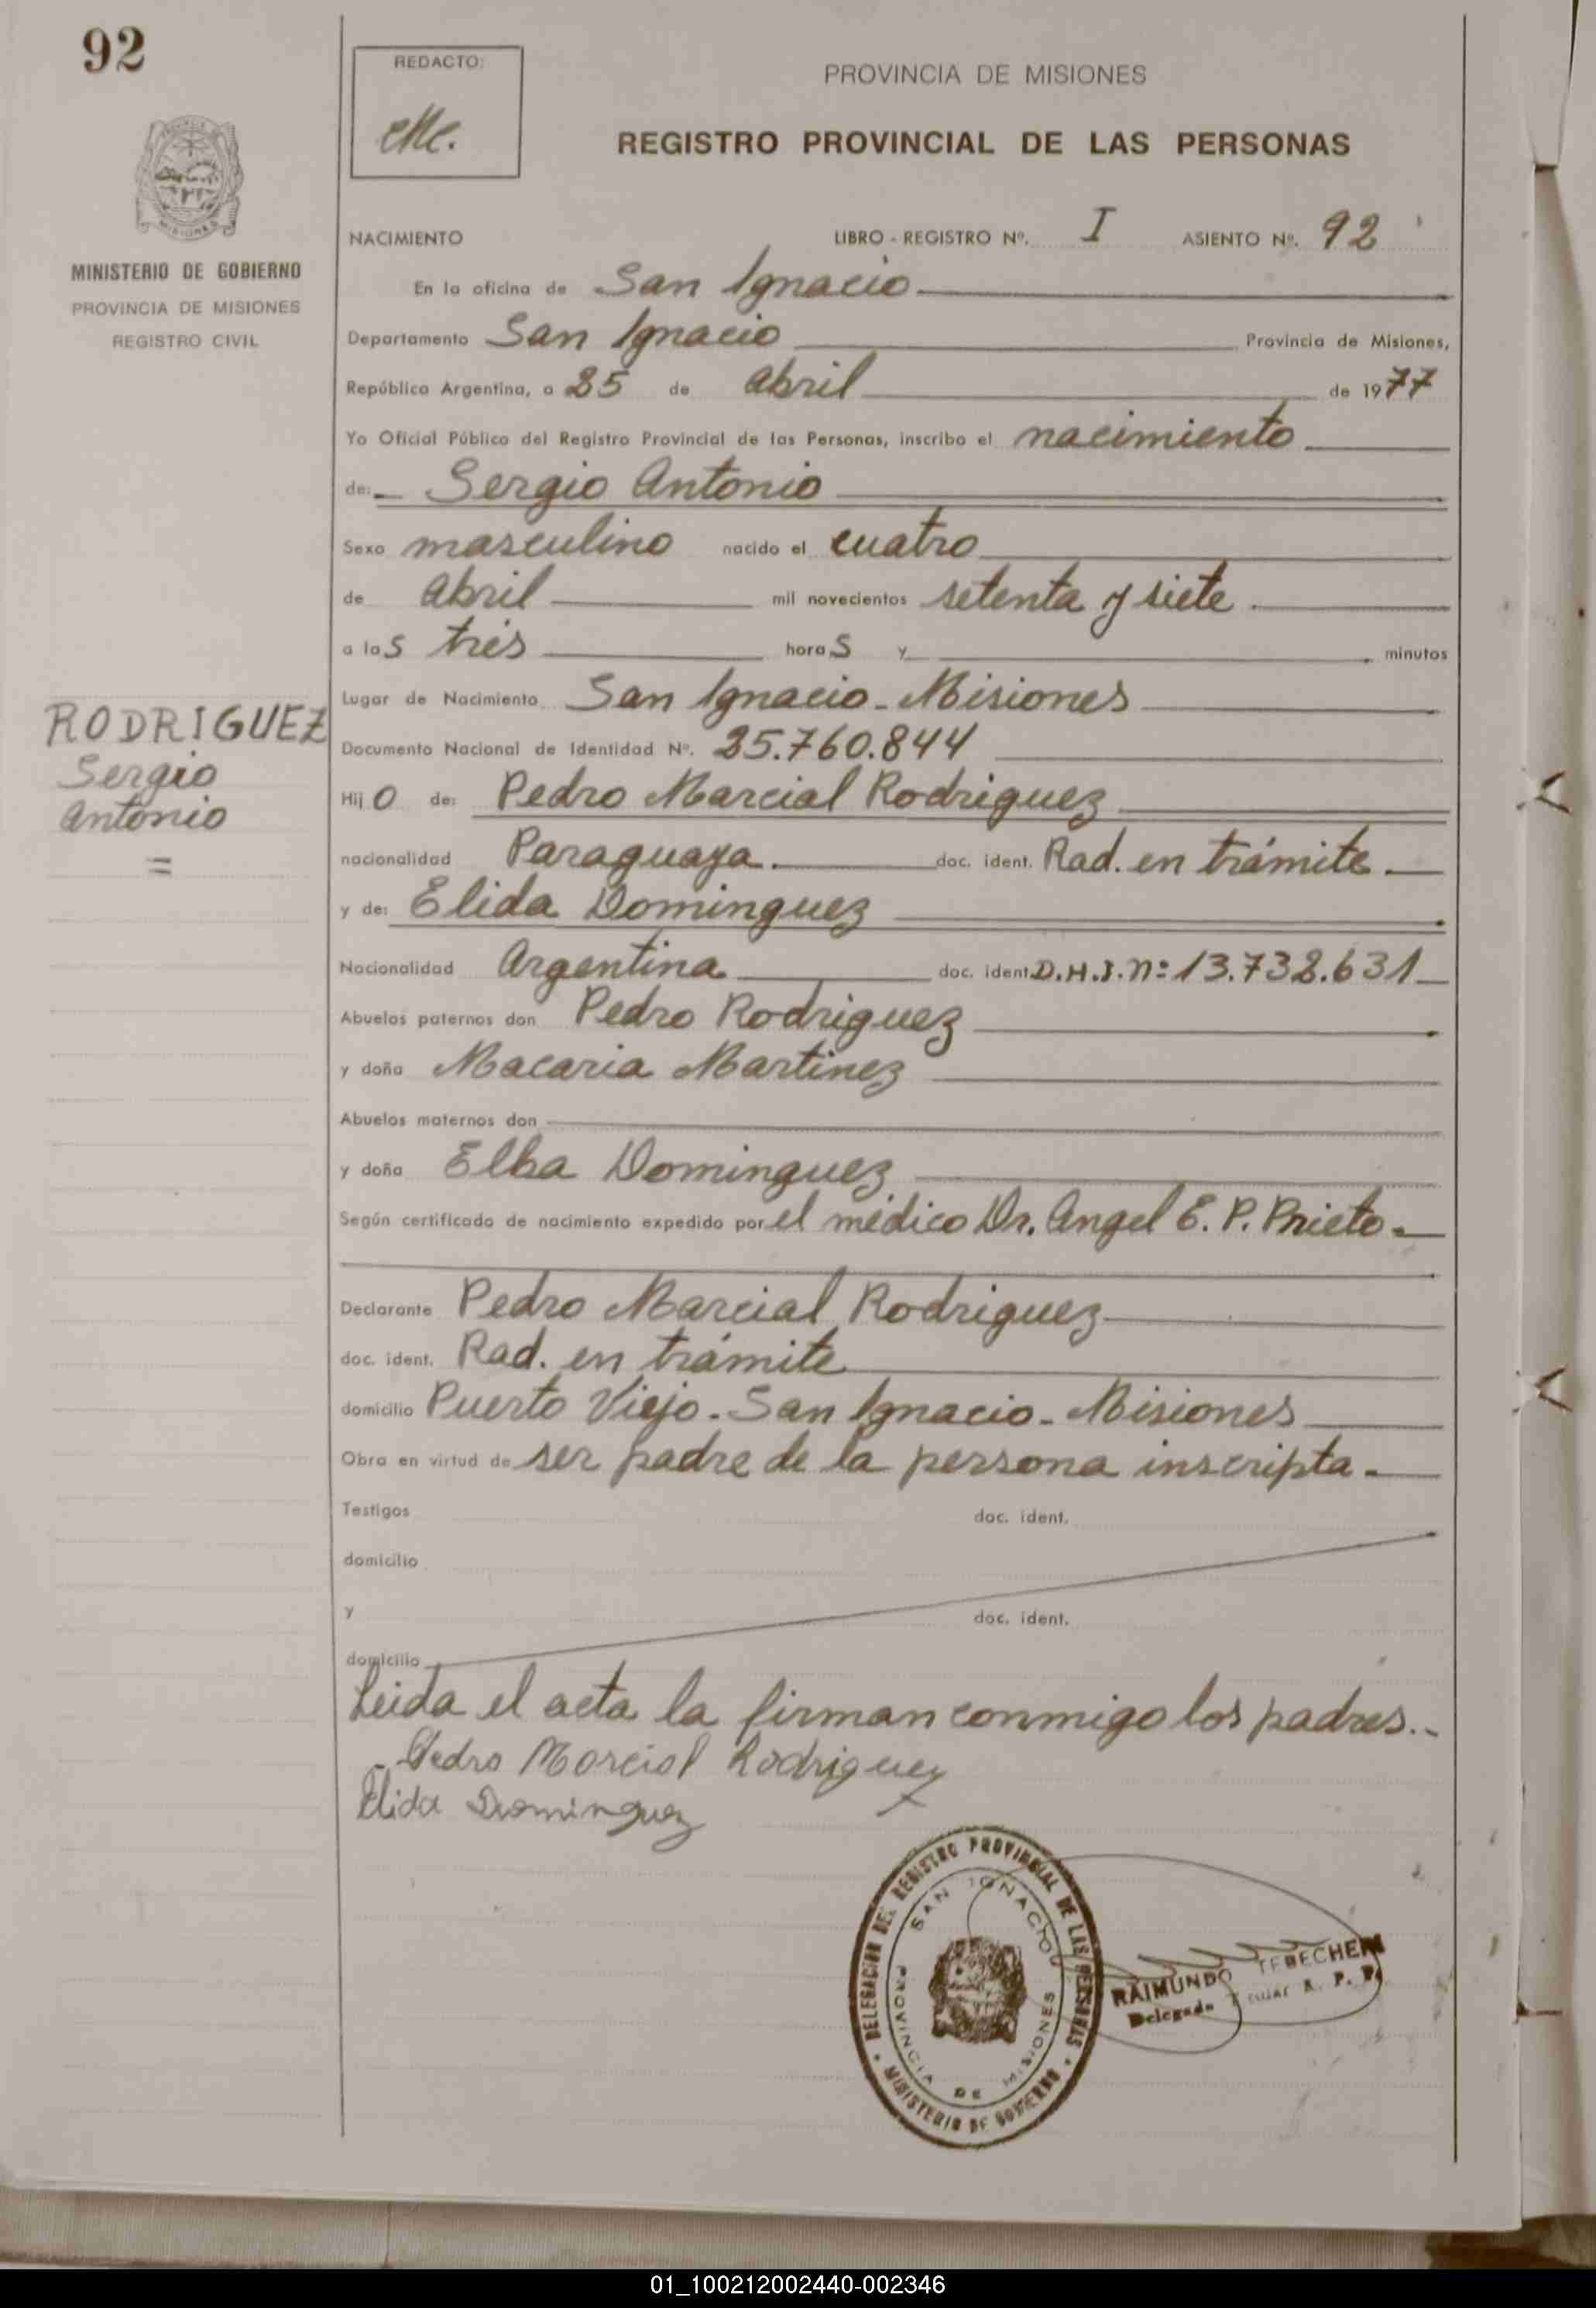 92
REDACTO:
PROVINCIA DE MISIONES
REGISTRO PROVINCIAL DE LAS PERSONAS
MINISTERIO DE GOBIERNO
PROVINCIA DE MISIONES
REGISTRO CIVIL
NACIMIENTO LIBRO - REGISTRO Nº. I ASIENTO Nº. 92
En la oficina de San Ignacio
Departamento San Ignacio Provincia de Misiones,
República Argentina, a 25 de Abril de 1977
Yo Oficial Público del Registro Provincial de las Personas, inscribo el nacimiento
de: Sergio Antonio
Sexo masculino nacido el cuatro
de Abril mil novecientos setenta y siete.
a las tres horas y minutos
Lugar de Nacimiento San Ignacio - Misiones
RODRIGUEZ
Sergio
Antonio
=
Documento Nacional de Identidad Nº. 25.760.844
Hijo de: Pedro Marcial Rodriguez
nacionalidad Paraguaya. doc. ident. Rad. en trámite.
y de: Elida Dominguez
Nacionalidad Argentina doc. ident. D.N.I. nº 13.738.631
Abuelos paternos don Pedro Rodriguez
y doña Macaria Martinez
Abuelos maternos don
y doña Elba Dominguez
Según certificado de nacimiento expedido por el médico Dr. Angel E. P. Prieto.
Declarante Pedro Marcial Rodriguez
doc. ident. Rad. en trámite
domicilio Puerto Viejo - San Ignacio - Misiones
Obra en virtud de ser padre de la persona inscripta.
Testigos doc. ident.
domicilio
y doc. ident.
domicilio
Leida el acta la firman conmigo los padres.-
Pedro Marcial Rodriguez
Elida Dominguez
DELEGACION DEL REGISTRO PROVINCIAL DE LAS PERSONAS
SAN IGNACIO
PROVINCIA DE MISIONES
MINISTERIO DE GOBIERNO
RAIMUNDO
Delegado R. P. P.
01_100212002440-002346